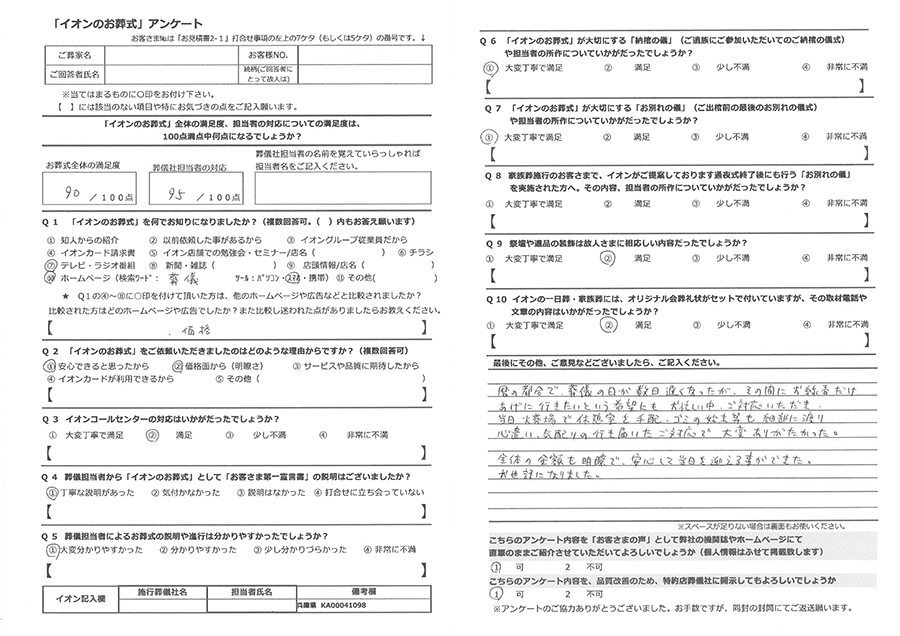 「イオンのお葬式」アンケート
お客さま№は「お見積書2-1」打合せ事項の左上の7ケタ（もしくは5ケタ）の番号です。↓
ご葬家名
お客様NO.
ご回答者氏名
続柄(ご回答者に
とって故人は)
※当てはまるものに○印をお付け下さい。
【　】には該当のない項目や特にお気づきの点をご記入願います。
「イオンのお葬式」全体の満足度、担当者の対応についての満足度は、
100点満点中何点になるでしょうか？
お葬式全体の満足度
葬儀社担当者の対応
葬儀社担当者の名前を覚えていらっしゃれば
担当者名をご記入ください。
90 /100点
95 /100点
Q1 「イオンのお葬式」を何でお知りになりましたか？（複数回答可。（　）内もお答え願います）
① 知人からの紹介 ② 以前依頼した事があるから ③ イオングループ従業員だから
④ イオンカード請求書 ⑤ イオン店舗での勉強会・セミナー/店名（　） ⑥ チラシ
⑦ テレビ・ラジオ番組 ⑧ 新聞・雑誌（　） ⑨ 店頭情報/店名（　）
⑩ ホームページ（検索ﾜｰﾄﾞ： 葬儀 ﾂｰﾙ：ﾊﾟｿｺﾝ・ｽﾏﾎ・携帯）⑪ その他(　)
★ Q1の④～⑩に○印を付けて頂いた方は、他のホームページや広告などと比較されましたか？
比較された方はどのホームページや広告でしたか？また比較し迷われた点がありましたらお教えください。
【　価格　】
Q2 「イオンのお葬式」をご依頼いただきましたのはどのような理由からですか？（複数回答可）
① 安心できると思ったから ② 価格面から（明瞭さ） ③ サービスや品質に期待したから
④ イオンカードが利用できるから ⑤ その他（　）
【　】
Q3 イオンコールセンターの対応はいかがだったでしょうか？
① 大変丁寧で満足 ② 満足 ③ 少し不満 ④ 非常に不満
【　】
Q4 葬儀担当者から「イオンのお葬式」として「お客さま第一宣言書」の説明はございましたか？
① 丁寧な説明があった ② 気付かなかった ③ 説明はなかった ④ 打合せに立ち会っていない
【　】
Q5 葬儀担当者によるお葬式の説明や進行は分かりやすかったでしょうか？
① 大変分かりやすかった ② 分かりやすかった ③ 少し分かりづらかった ④ 非常に不満
【　】
イオン記入欄
施行葬儀社名
担当者氏名
備考欄
兵庫県 KA00041098
Q6 「イオンのお葬式」が大切にする「納棺の儀」（ご遺族にご参加いただいてのご納棺の儀式）
や担当者の所作についていかがだったでしょうか？
① 大変丁寧で満足 ② 満足 ③ 少し不満 ④ 非常に不満
【　】
Q7 「イオンのお葬式」が大切にする「お別れの儀」（ご出棺前の最後のお別れの儀式）
や担当者の所作についていかがだったでしょうか？
① 大変丁寧で満足 ② 満足 ③ 少し不満 ④ 非常に不満
【　】
Q8 家族葬施行のお客さまで、イオンがご提案しております通夜式終了後にも行う「お別れの儀」
を実施された方へ。その内容、担当者の所作についていかがだったでしょうか？
① 大変丁寧で満足 ② 満足 ③ 少し不満 ④ 非常に不満
【　】
Q9 祭壇や遺品の装飾は故人さまに相応しい内容だったでしょうか？
① 大変丁寧で満足 ② 満足 ③ 少し不満 ④ 非常に不満
【　】
Q10 イオンの一日葬・家族葬には、オリジナル会葬礼状がセットで付いていますが、その取材電話や
文章の内容はいかがだったでしょうか？
① 大変丁寧で満足 ② 満足 ③ 少し不満 ④ 非常に不満
【　】
最後にその他、ご意見などございましたら、ご記入ください。
暦の都合で、葬儀の日が数日遠くなったが、その間にお線香だけ
あげに行きたいという希望にも お忙しい中、ご対応いただき、
当日火葬場で休憩室を手配、ゴミの始末等も細部に渡り
心遣い、気配りの行き届いたご対応で 大変ありがたかった。
全体の金額も明瞭で、安心して当日を迎える事ができました。
お世話になりました。
※スペースが足りない場合は裏面もお使いください。
こちらのアンケート内容を「お客さまの声」として弊社の機関誌やホームページにて
直筆のままご紹介させていただいてよろしいでしょうか（個人情報はふせて掲載致します）
1 可 2 不可
こちらのアンケート内容を、品質改善のため、特約店葬儀社に開示してもよろしいでしょうか
1 可 2 不可
※アンケートのご協力ありがとうございました。お手数ですが、同封の封筒にてご返送願います。